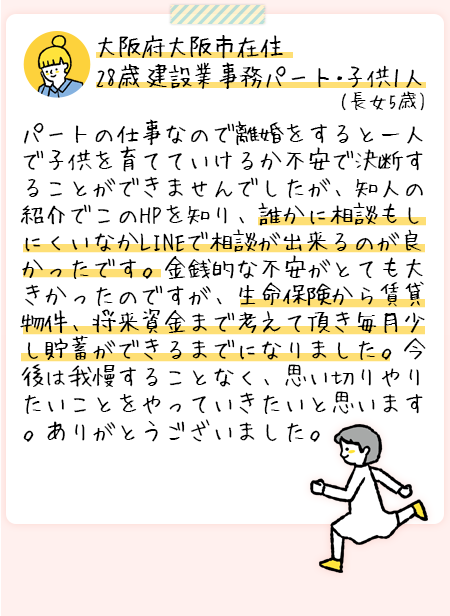 大阪府大阪市在住
28歳 建設業事務パート・子供1人
(長女5歳)
パートの仕事なので離婚をすると一人
で子供を育てていけるか不安で決断す
ることができませんでしたが、知人の
紹介でこのHPを知り、誰かに相談もし
にくいなかLINEで相談が出来るのが良
かったです。金銭的な不安がとても大
きかったのですが、生命保険から賃貸
物件、将来資金まで考えて頂き毎月少
し貯蓄ができるまでになりました。今
後は我慢することなく、思い切りやり
たいことをやっていきたいと思います
。ありがとうございました。